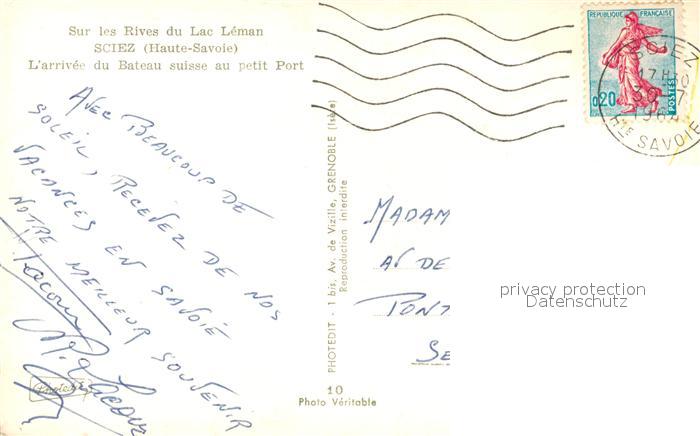 Sur les Rives du Lac Léman
SCIEZ (Haute-Savoie)
L'arrivée du Bateau suisse au petit Port
REPUBLIQUE FRANÇAISE
0,20
POSTES
SCIEZ
17H30
30-7
HTE SAVOIE
AVEC BEAUCOUP DE
SOLEIL, RECEVEZ DE NOS
VACANCES EN SAVOIE
NOTRE MEILLEUR SOUVENIR
PHOTEDIT - 1 bis, Av. de Vizille, GRENOBLE (Isère)
Reproduction interdite
MADAM
AV DE
PONT
SE
privacy protection
Datenschutz
Photedit
10
Photo Véritable